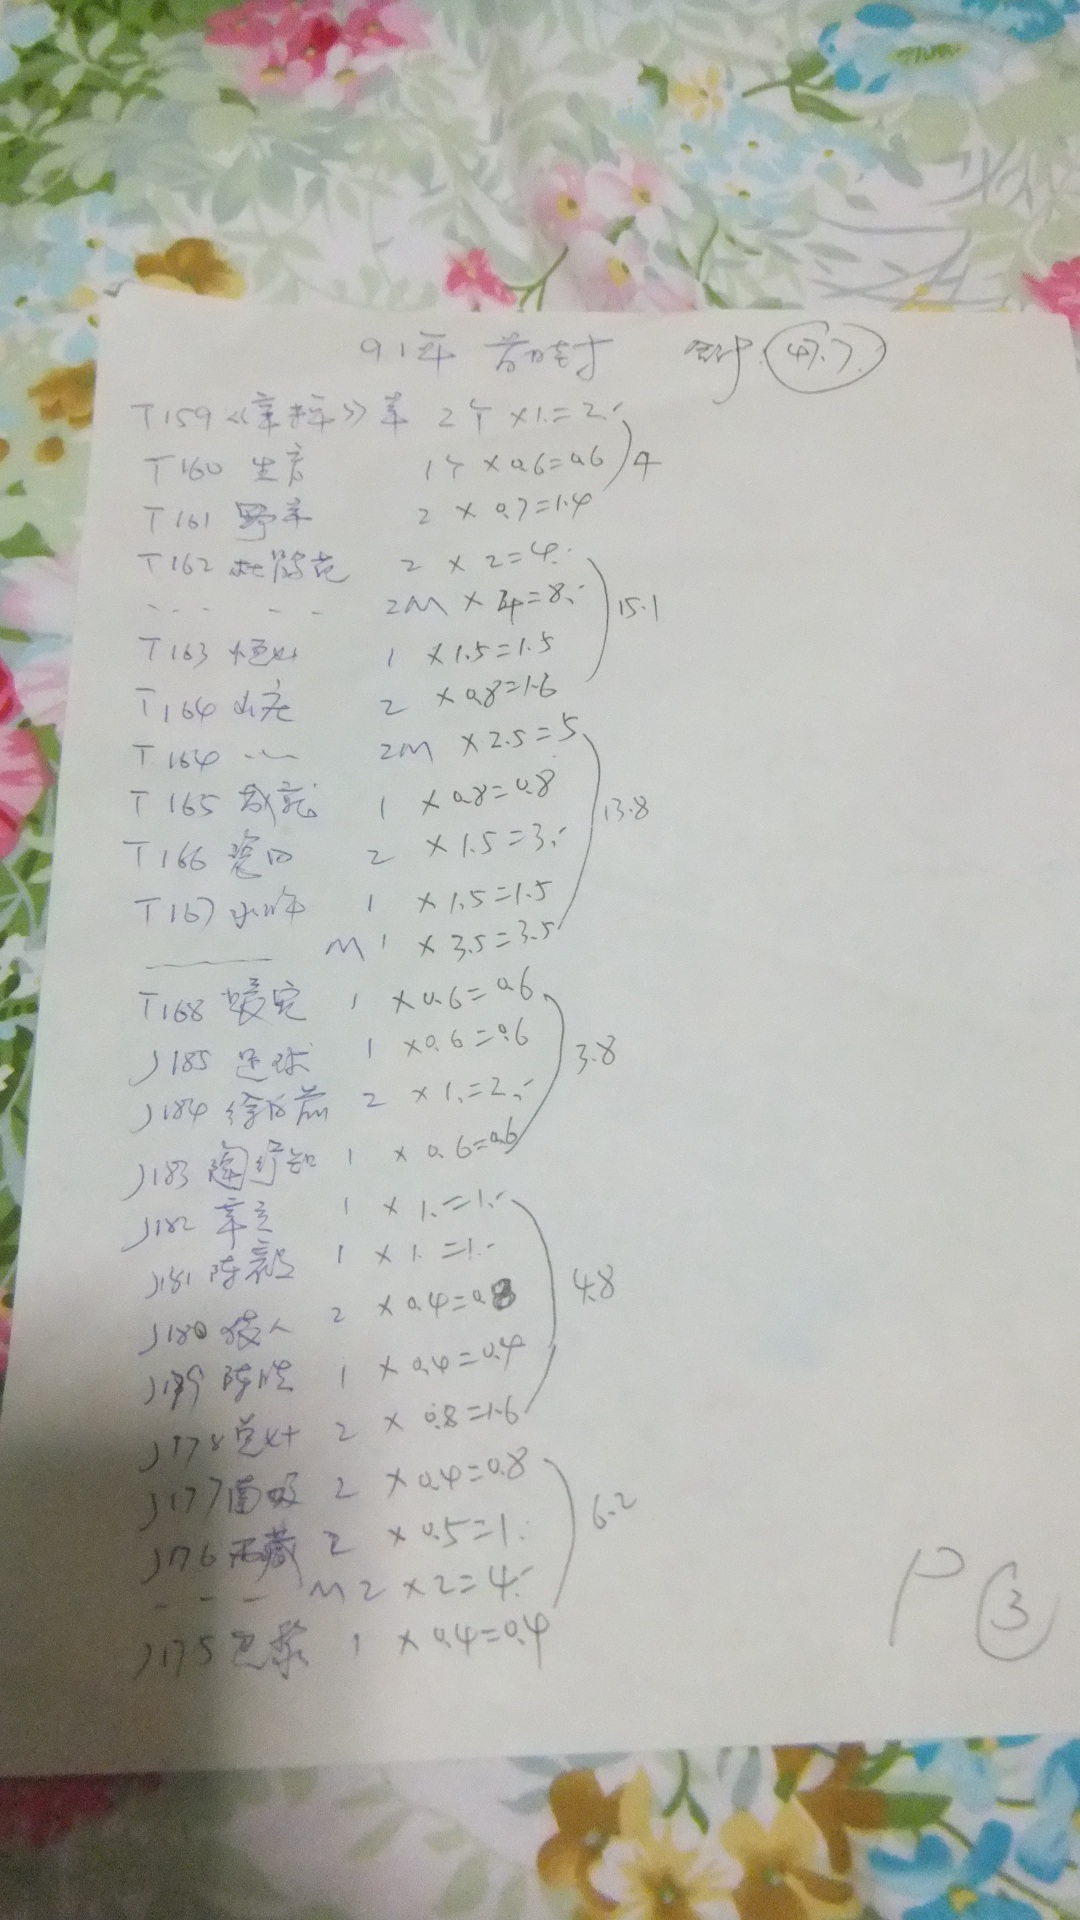 91年 前封 合计 47.7
T159《辛未》羊 2个 ×1.=2.-
T160 生产 1个 ×0.6=0.6 4
T161 野羊 2 × 0.7=1.4
T162 杜鹃花 2 × 2=4.
- - - - - 2M × 4=8.- 15.1
T163 恒山 1 ×1.5=1.5
T164 山庄 2 ×0.8=1.6
T164 〃 2M ×2.5=5
T165 成就 1 ×0.8=0.8 13.8
T166 瓷 2 ×1.5=3.-
T167 水浒 1 ×1.5=1.5
—— M1 × 3.5=3.5
T168 赈灾 1 ×0.6=0.6
J185 足球 1 ×0.6=0.6 3.8
J184 徐向前 2 ×1.=2.-
J183 陶行知 1 ×0.6=0.6
J182 辛亥 1 ×1.=1.-
J181 陈毅 1 ×1.=1.-
J180 2 ×0.4=0.8 4.8
J179 陈胜 1 ×0.4=0.4
J178 2 × 0.8=1.6
J177 2 ×0.4=0.8
J176 西藏 2 ×0.5=1. 6.2
- - - M2 ×2=4.-
J175 巴黎 1 ×0.4=0.4
P③